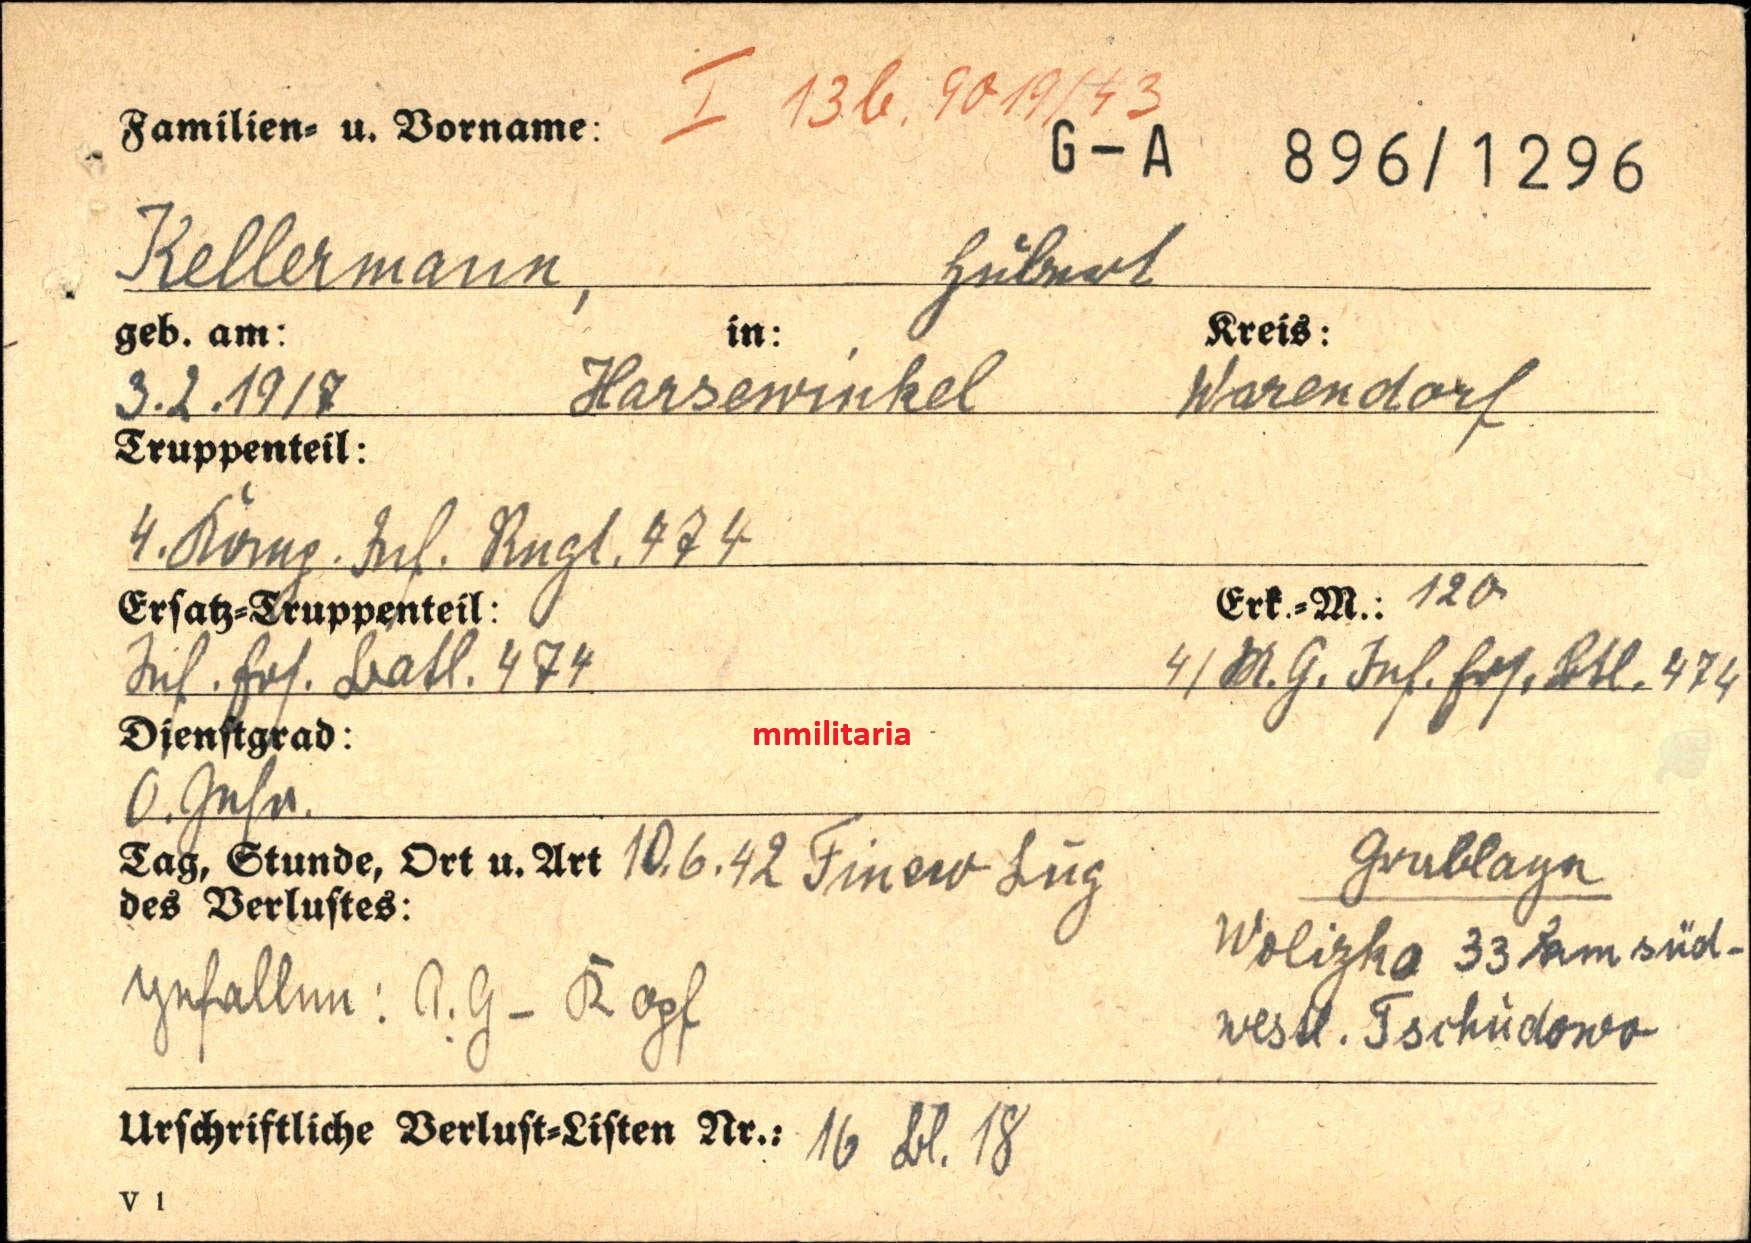 I 13b. 9019/43
Familien- u. Vorname:
G-A 896/1296
Kellermann, Hubert
geb. am: in: Kreis:
3.2.1917 Harsewinkel Warendorf
Truppenteil:
4. Komp. Inf. Rngt. 474
Ersatz-Truppenteil: Erk.-M.: 120
Inf. Ers. Batl. 474 4/ M.G. Inf. Ers. Btl. 474
Dienstgrad:
mmilitaria
O. Gefr.
Tag, Stunde, Ort u. Art 10.6.42 Finew Lug Grablage
des Verlustes:
Wolizka 33 km süd-
gefallen: A.G- Kopf westl. Tschudowo
Urschriftliche Verlust-Listen Nr.: 16 Bl. 18
V 1